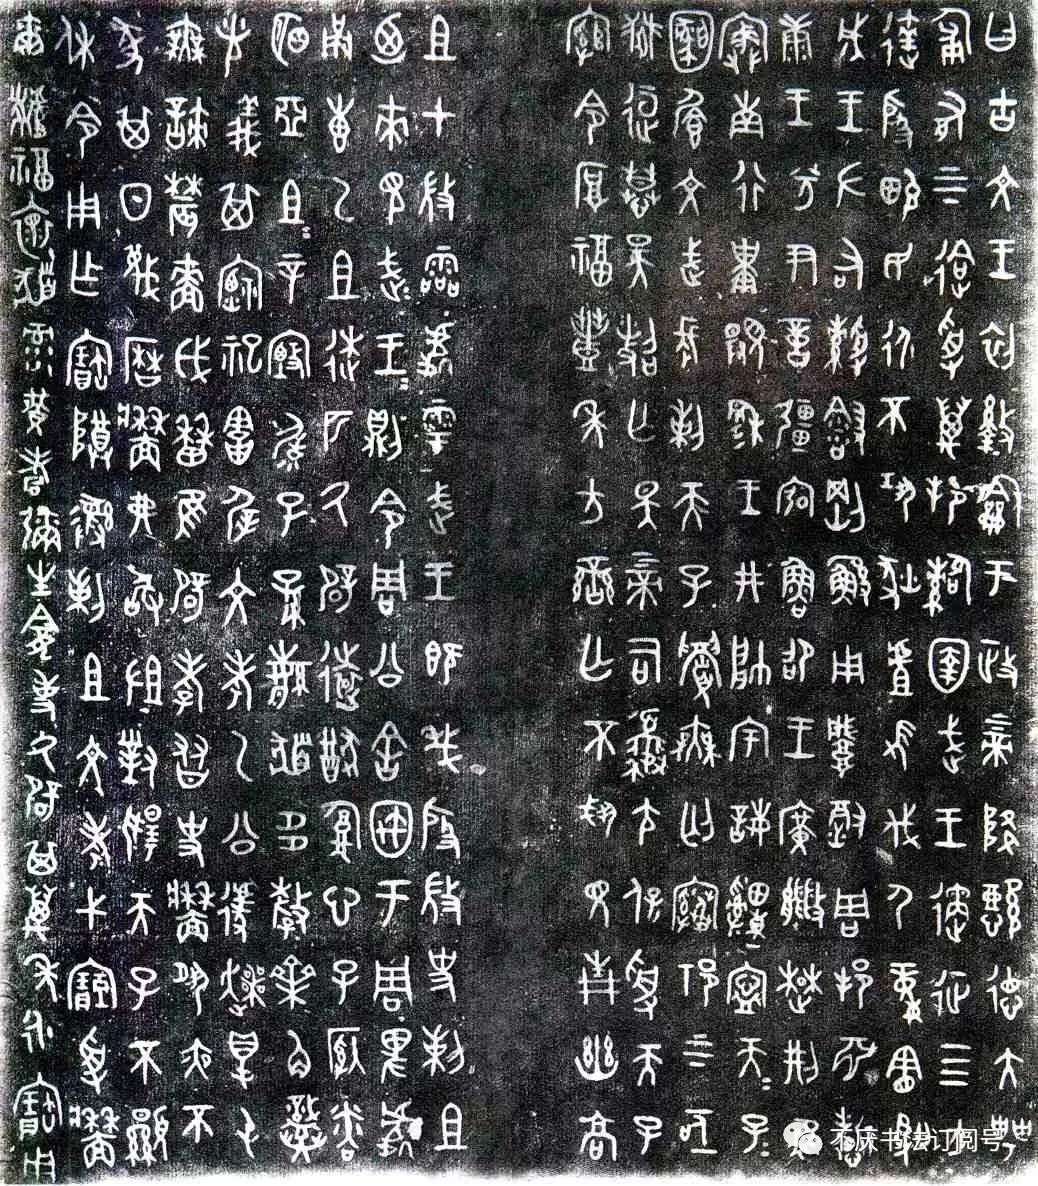 曰古文王初盭龢于政上帝降懿德大甹
匍有上下迨受萬邦𧽙圉武王遹征四方
達殷畯民永不巩狄虘𢼸伐尸童憲聖
成王左右綬會剛鯀用肇徹周邦淵哲
康王兮尹億疆宖魯卲王廣能楚荊隹
寏南行祗覭穆王井帥宇誨申寧天子
天子圝饡文武長剌天子釁無匄褰祁上下
亟獄逗慕昊照亡斁上帝司夒尢保受天子
綰令厚福豐年方蠻亡不𢦚見青幽高
且才微靈處雩武王既𢦏殷微史剌且
廼來見武王武王則令周公舍㝢于周卑處
甬叀乙且逑匹厥辟遠猷腹心子納粦明
亞且且辛毓子孫繁祓多孷齊角熾光
義其禋祀害遲文考乙公遽爽得屯
無諫農穡戉曆隹辟孝友史牆夙夜不
彖其日蔑曆牆弗敢沮對揚天子不顯
休令用乍寶尊彝剌且文考弋寶受牆
爾黻福懷祓彔黃耇彌生龕事厥辟其萬年永寶用
不厌书法订阅号